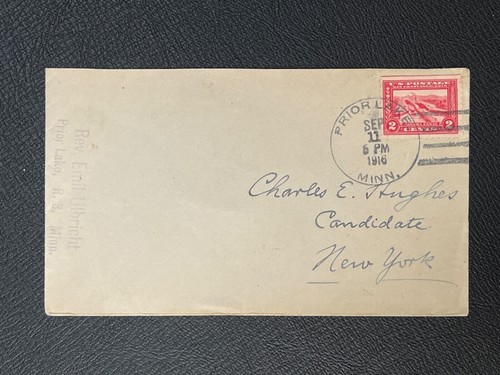 U.S. POSTAGE
2 CENTS 2
PRIOR LAKE
SEP
11
6 PM
1916
MINN.
Charles E. Hughes
Candidate
New York
Rev. Emil Ulbricht
Prior Lake, R. 3. Minn.